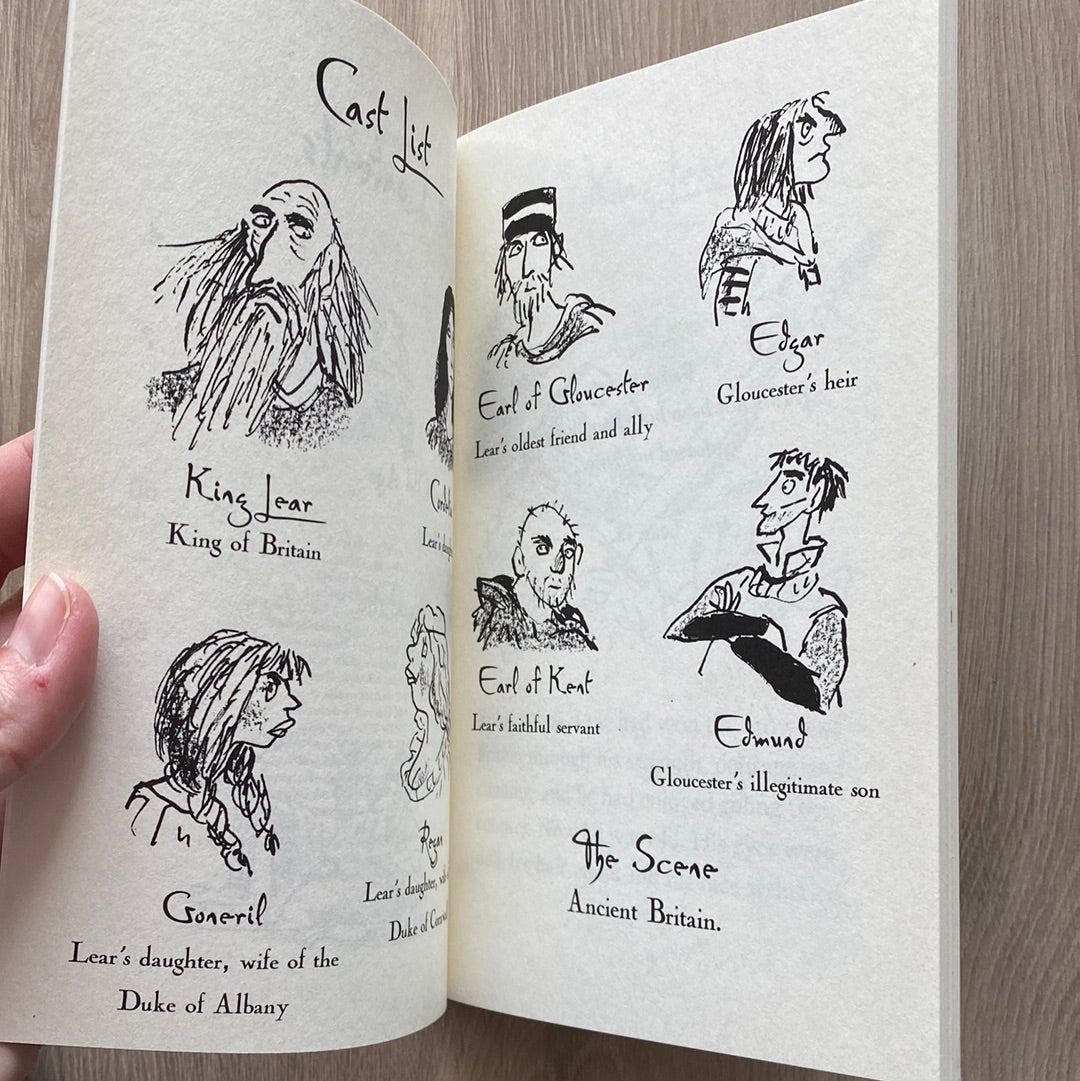 Cast List
King Lear
King of Britain
Lear's
Goneril
Lear's daughter, wife of the
Duke of Albany
Regan
Lear's daughter,
Duke of
Earl of Gloucester
Lear's oldest friend and ally
Edgar
Gloucester's heir
Earl of Kent
Lear's faithful servant
Edmund
Gloucester's illegitimate son
The Scene
Ancient Britain.